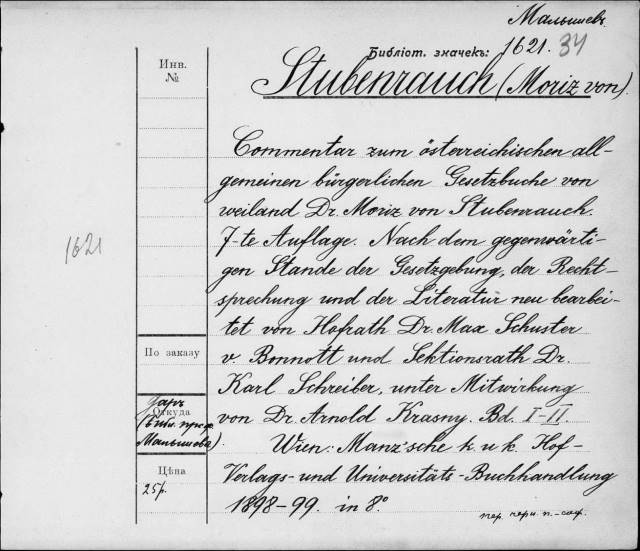 Малышев
Библіот. значекъ: 1621. 34
Stubenrauch (Moriz von).
Инв.
№
Commentar zum österreichischen all-
gemeinen bürgerlichen Gesetzbuche von
weiland Dr. Moriz von Stubenrauch.
7-te Auflage. Nach dem gegenwärti-
gen Stande der Gesetzgebung, der Recht-
sprechung und der Literatur neu bearbei-
tet von Hofrath Dr. Max Schuster
v. Bonnott und Sektionsrath Dr.
Karl Schreiber, unter Mitwirkung
von Dr. Arnold Krasny. Bd. I-II.
Wien: Manz'sche k. u. k. Hof-
Verlags- und Universitäts-Buchhandlung
1898-99. in 8°
пер. черн. п.-саф.
1621
По заказу
Даръ
Откуда
(библ. проф.
Малышева).
Цѣна
25 р.